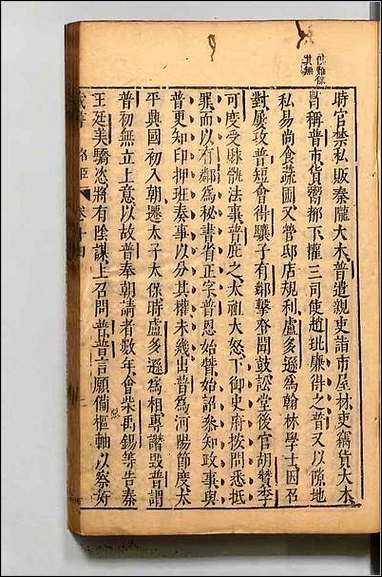 時官禁私販秦隴大木普遣親吏詣市屋材吏竊貨大木
冒稱普市貨鬻都下權三司使趙玭廉得之普又以隙地
私易尚食蔬圃又營邸店規利盧多遜爲翰林學士因召
對屢攻普短會得驤子有鄰擊登聞鼓訟堂後官胡贊李
可度受賕骫法事普庇之太祖大怒下御史府按問悉抵
罪而以有鄰爲秘書省正字普恩始替始詔參知政事與
普更知印押班奏事以分其權未幾出普爲河陽節度太
平興國初入朝遷太子太保時盧多遜爲相專讒毀普謂
普初無立上意以故普奉朝請者數年會柴禹錫等告秦
王廷美驕恣將有陰謀上召問普普言願備樞軸以察姦